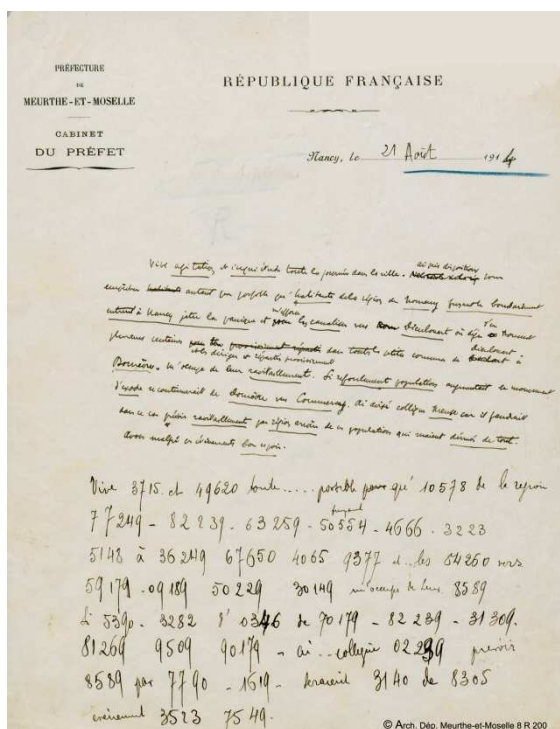 PRÉFECTURE
DE
MEURTHE-ET-MOSELLE
CABINET
DU PRÉFET
RÉPUBLIQUE FRANÇAISE
Nancy, le 21 Août 1914
Vive agitation et inquiétude toute la journée dans la ville. ai pris dispositions pour
empêcher autant que possible qu'habitants de la région de Nomeny fuyant le bombardement
entrent à Nancy jeter la panique et les canaliser vers Dieulouard où déjà s'en trouvent
plusieurs centaines dans toutes les communes de Dieulouard à
et les diriger et répartir provisoirement
Domèvre. m'occupe de leur ravitaillement. Si refoulement populations augmentait en mouvement
d'exode on continuerait de Domèvre vers Commercy. Ai avisé collègue Meuse car il faudrait
dans ce cas prévoir ravitaillement par région de ces populations qui seraient dénuées de tout
Avons malgré ces événements bon espoir.
Vive 3715 et 49620 toute..... possible pour qu' 10578 de la région
77249 - 82239 - 63259 - 50554 - 4666 - 3223
5148 à 36249 67650 4065 9377 et les 84260 vers
59179 - 09189 50229 30149 m'occupe de leur 8589
Si 5390 - 3282 d' 0346 de 70179 - 82239 - 31309.
81269 9509 90179 - ai .. collègue 02239 prévoir
8589 par 7790 - 1619 - seraient 3140 de 8305
événement 3523 7549.
© Arch. Dép. Meurthe-et-Moselle 8 R 200